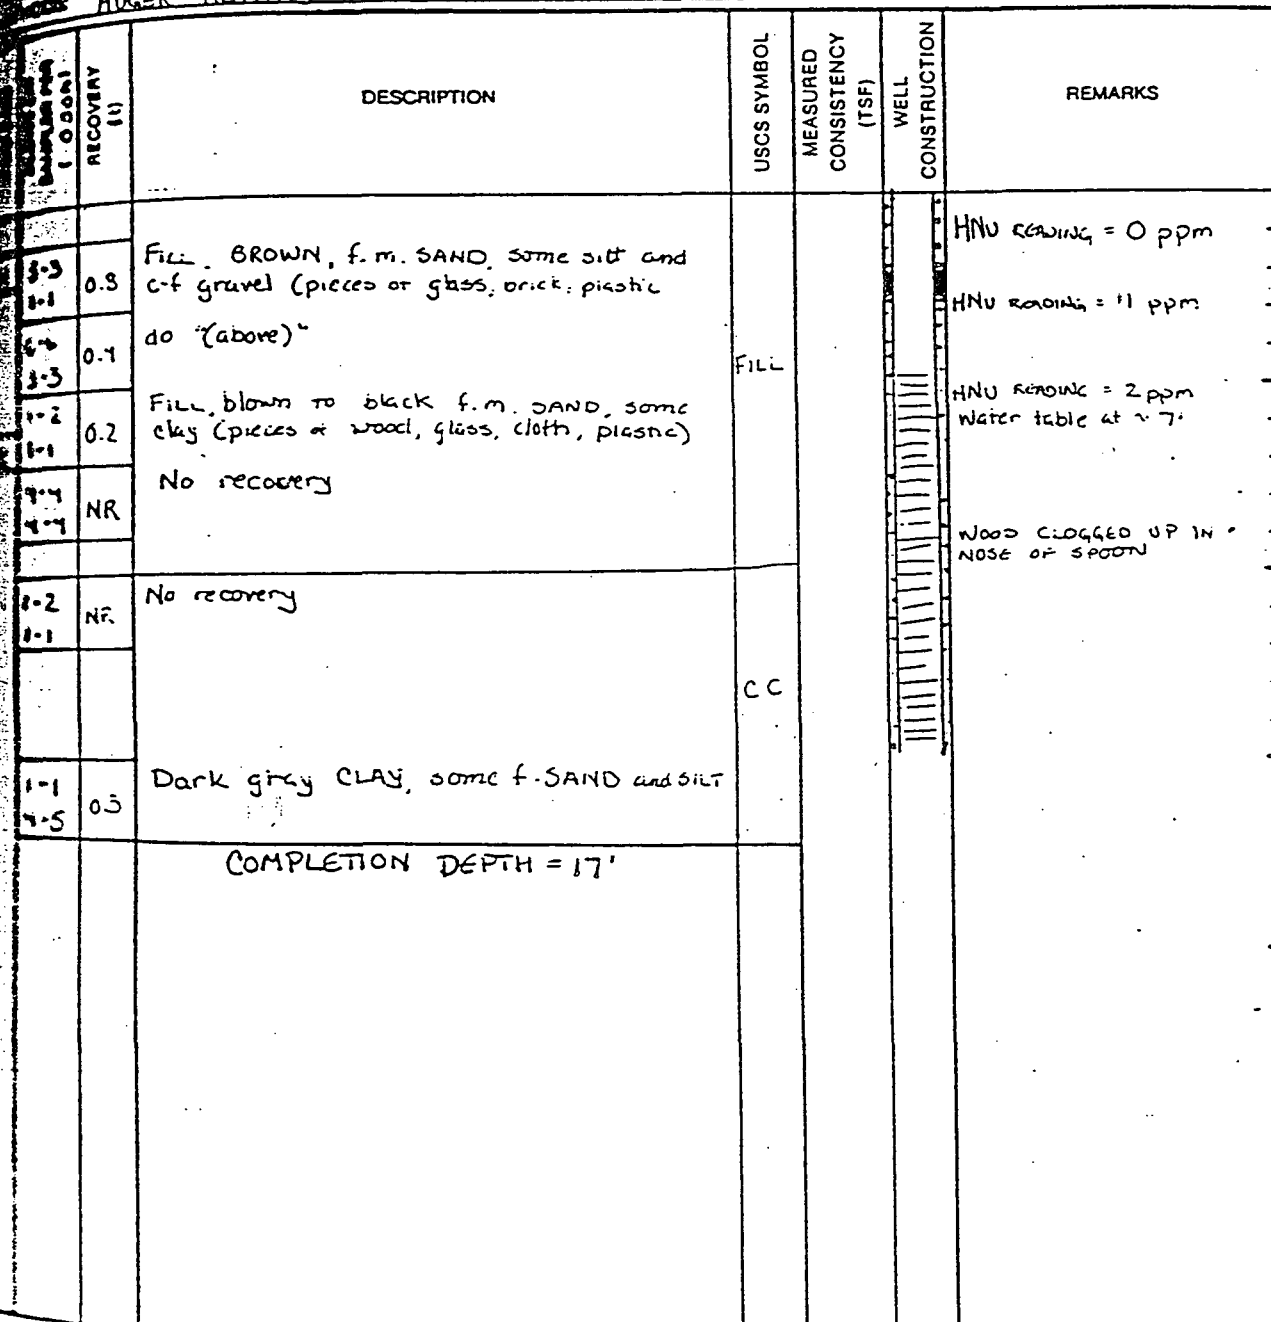 AUGER
RECOVERY
DESCRIPTION
USCS SYMBOL
MEASURED
CONSISTENCY
(TSF)
WELL
CONSTRUCTION
REMARKS
HNU READING = 0 ppm
3-3
1-1
0.3
FILL. BROWN, f.m. SAND, some silt and
c-f gravel (pieces of glass, brick, plastic
HNU READING = 11 ppm
3-3
0.4
do "(above)"
FILL
1-2
1-1
0.2
FILL, blown to black f.m. SAND, some
clay (pieces of wood, glass, cloth, plastic)
HNU READING = 2 ppm
Water table at ~ 7'
4-4
4-4
NR
No recovery
WOOD CLOGGED UP IN
NOSE OF SPOON
1-1
NR
No recovery
CC
1-1
4-5
0.5
Dark gray CLAY, some f-SAND and SILT
COMPLETION DEPTH = 17'